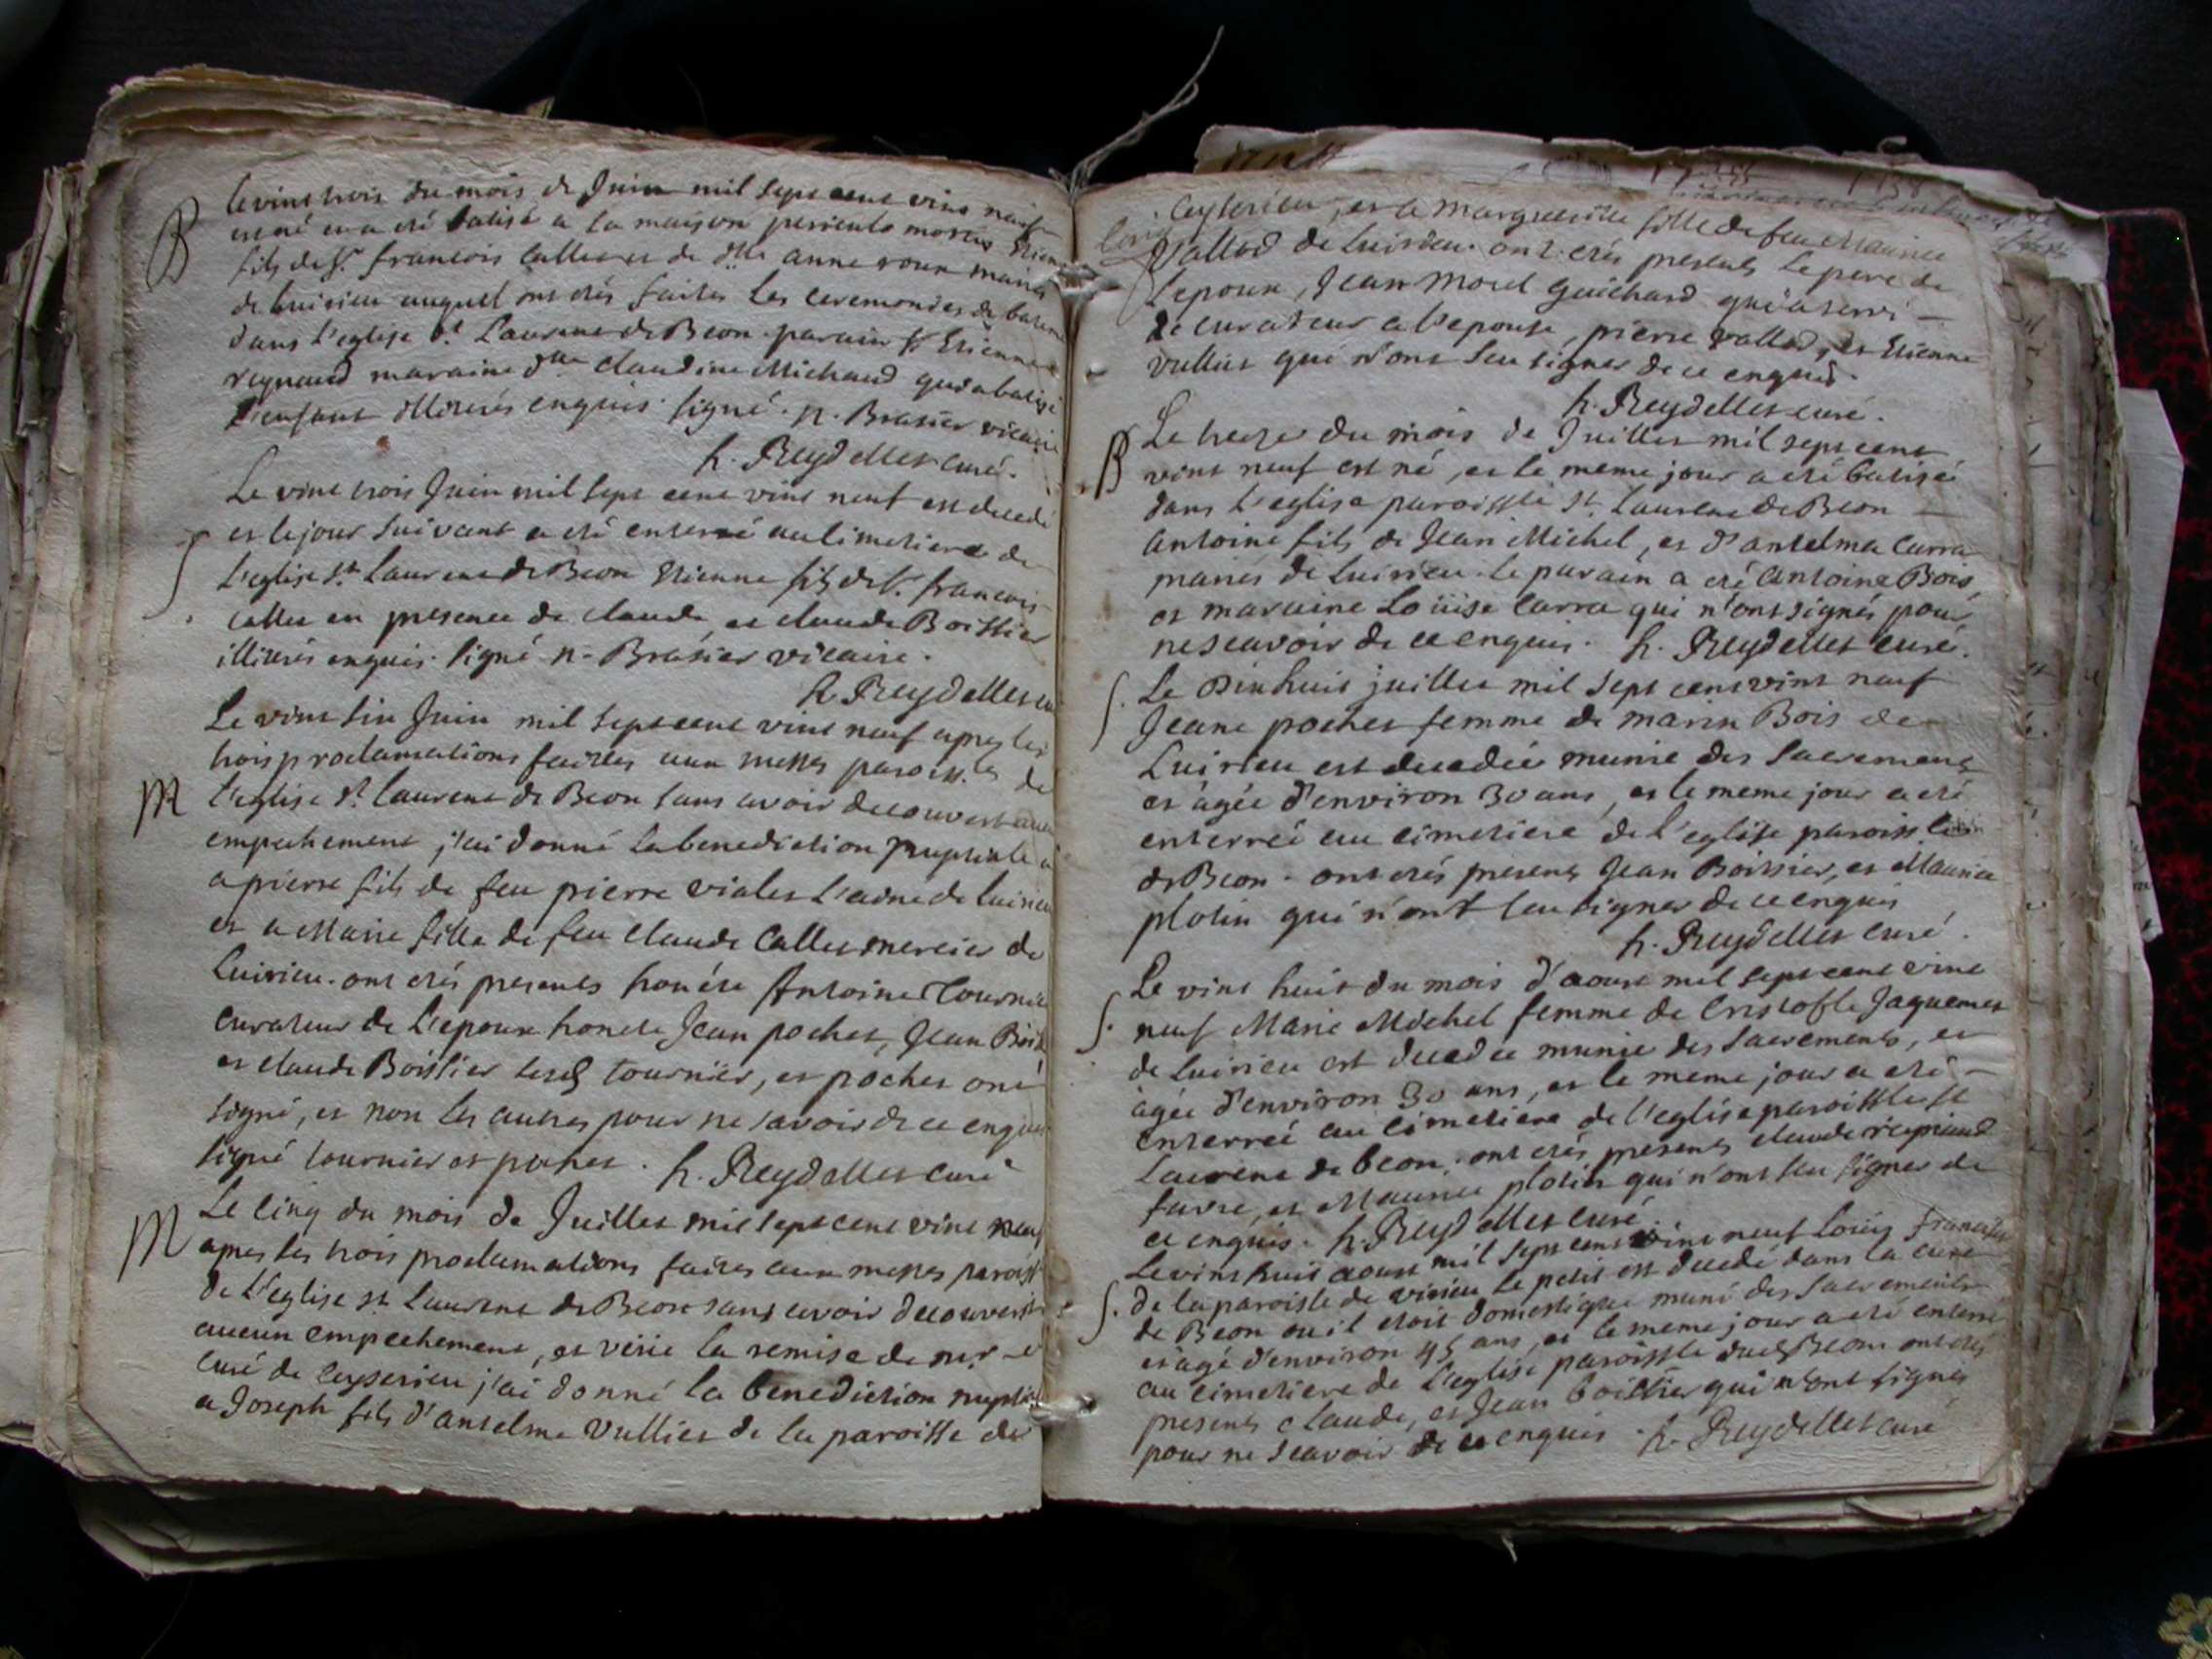 B
le vint trois du mois de Juin mil sept cent vint neuf
est né et a eté batisé a la maison periculo mortis Etien
fils de Sr. francois Callet et de dlle anne roux mariés
de luirieu auquel ont etés faites les ceremonies de batem
dans l'eglise St. Laurent de Beon parain Sr Etienne
reynaud maraine dlle claudine Michaud qui a batisé
l'enfant illiterés enquis. signé. n. Brasier vicaire
h. Reydellet curé.
S
Le vint trois Juin mil sept cent vint neuf est decedé
et le jour suivant a eté enterré au cimetiere de
l'eglise St. Laurent de Beon Etienne fils de Sr. francois
Callet en presence de claude et claude Boissier
illiterés enquis. signé n. Brasier vicaire.
h Reydellet cu
M
Le vint six Juin mil sept cent vint neuf apres les
trois proclamations faites aux messes paroiss.les de
l'eglise St. laurent de Beon sans avoir decouvert aucu
empechement j'ai donné la benediction nuptiale
a pierre fils de feu pierre vialet l'aine de luirieu
et a Marie fille de feu claude Callet mercier de
luirieu. ont etés presents honéte Antoine Tournie
curateur de l'epoux honete Jean pochet, Jean Bois
et claude Boissier lesd tournier, et pochet ont
signé, et non les autres pour ne savoir de ce enquis
signé tournier et pochet. h. Reydellet curé
M
Le cinq du mois de Juillet mil sept cent vint neuf
apres les trois proclamations faites aux messes paroiss
de l'eglise St Laurent de Beon sans avoir decouvert
aucun empechement, et veüe la remise de mr. le
curé de ceyserieu j'ai donné la benediction nuptial
a Joseph fils d'Antelme Vulliet de la paroisse de
ceyserieu, et a marguerite fille de feu Maurice
vallod de luirieu. ont etés presents le pere de
l'epoux, Jean Morel guichard qui a servi
de curateur a l'epouse, pierre vallod, et Etienne
vulliet qui n'ont seu signer de ce enquis.
h. Reydellet curé.
B
Le treize du mois de Juillet mil sept cent
vint neuf est né, et le meme jour a eté batisé
dans l'eglise paroissle St. Laurent de Beon
Antoine fils de Jean Michel, et d'antelma Carra
mariés de luirieu. le parain a eté Antoine Bois
et maraine Loüise Carra qui n'ont signés pour
ne scavoir de ce enquis. h. Reydellet curé.
S.
Le Dixhuit juillet mil sept cent vint neuf
Jeane pochet femme de marin Bois de
Luirieu est decedée munie des sacrements
et agée d'environ 30 ans, et le meme jour a eté
enterreé au cimetiere de l'eglise paroissle
de Beon. ont etés presents Jean Boissier, et Maurice
plotin qui n'ont seu signer de ce enquis
h. Reydellet curé.
S.
Le vint huit du mois d'aoust mil sept cent vint
neuf Marie Michel femme de Cristofle Jaquemet
de luirieu est decedee munie des sacrements, et
agée d'environ 30 ans, et le meme jour a eté
enterreé au cimetiere de l'eglise paroissle St
Laurent de beon. ont etés presents claude reynaud
favre, et Maurice plotin qui n'ont seu signer de
ce enquis. h. Reydellet curé.
S.
Le vint huit aoust mil sept cent vint neuf Loüis
de la paroisse de virieu le petit est decedé dans la cure
de Beon ou il etoit domestique muni des sacrements
et agé d'environ 45 ans, et le meme jour a eté enterré
au cimetiere de l'eglise paroissle dud Beon ont etés
presents claude, et Jean boissier qui n'ont signés
pour ne scavoir de ce enquis. h. Reydellet curé